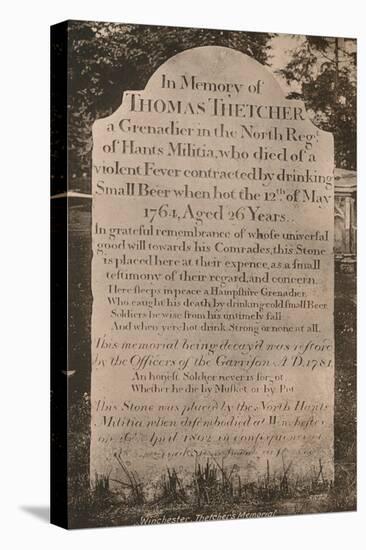 In Memory of
THOMAS THETCHER
a Grenadier in the North Regt.
of Hants Militia, who died of a
violent Fever contracted by drinking
Small Beer when hot the 12th. of May
1764, Aged 26 Years..
In grateful remembrance of whose universal
good will towards his Comrades, this Stone
is placed here at their expence, as a small
testimony of their regard, and concern.
Here sleeps in peace a Hampshire Grenadier,
Who caught his death by drinking cold small Beer
Soldiers be wise from his untimely fall
And when yere hot drink Strong or none at all.
This memorial being decay'd was restor'd
by the Officers of the Garrison A.D. 1781
An honest Soldier never is forgot
Whether he die by Musket or by Pot
This Stone was placed by the North Hants
Militia when disembodied at Winchester
on April 1802 in consequence of
Winchester, Thetcher's Memorial